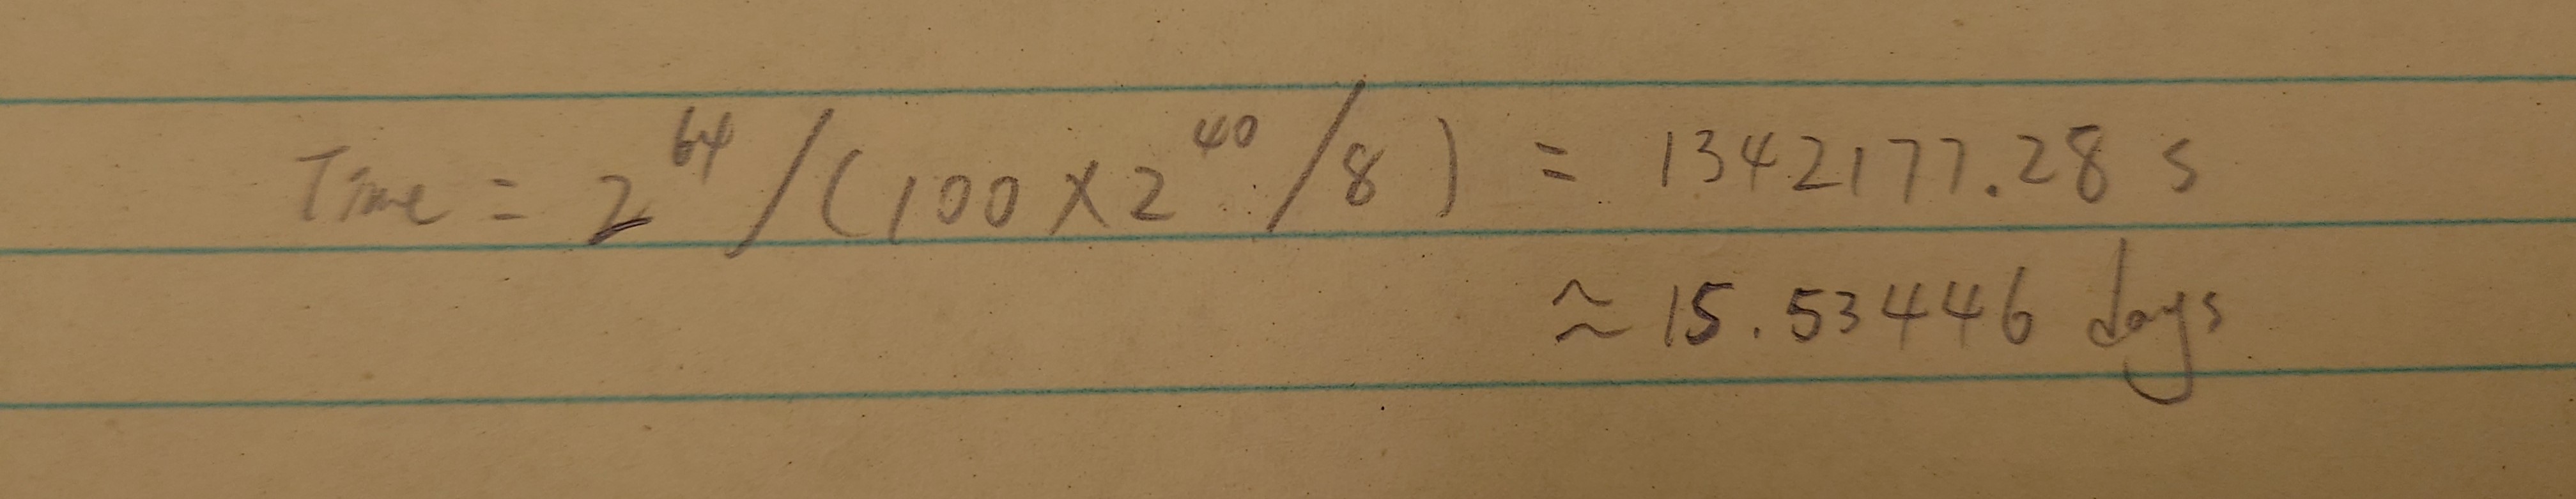 Time = 2^64/(100×2^40/8) = 1342177.28 s
≈ 15.53446 days